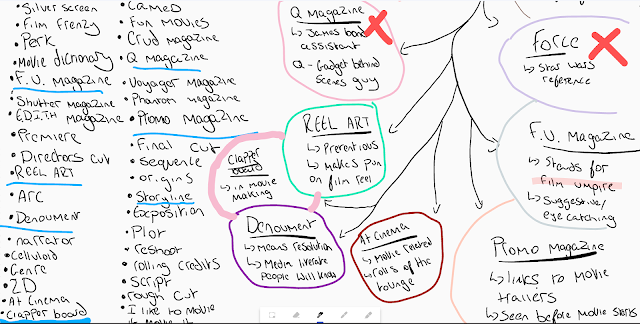 Silver screen
Film frenzy
Perk
Movie dictionary
F.U. Magazine
Shutter magazine
E.D.I.T.H magazine
Premiere
Directors cut
REEL ART
ARC
Denoument
narrator
Celluloid
Genre
2D
At Cinema
Clapper board
CameO
Fun movies
Crud magazine
Q magazine
Voyager Magazine
Phantom magazine
Promo Magazine
Final cut
Sequence
origins
Storyline
Exposition
Plot
reshoot
rolling credits
Script
rough cut
I like to movie
Q Magazine
↳ James bond
assistant
Q - Gadget behind
Scenes guy
REEL ART
↳ Pretentious
↳ makes pun
on film reel
Clapper
board
↳ in movie
making
Denoument
↳ Means resolution
↳ Media literate
People will know
At Cinema
↳ Movie related
↳ rolls of the
tounge
Force
↳ Star wars
reference
F.U. Magazine
↳ Stands for
film umpire
↳ Suggestive/
eye catching
Promo Magazine
↳ links to movie
trailers
↳ Seen before movie starts